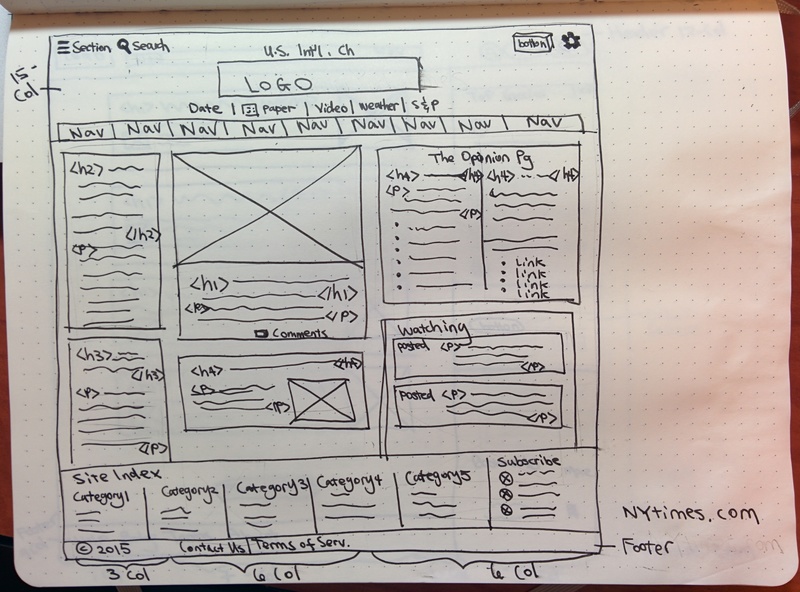 Section Search
U.S. Int'l. Ch
button
15-
Col
LOGO
Date | Paper | Video | Weather | S&P
Nav | Nav | Nav | Nav | Nav | Nav | Nav | Nav | Nav
<h2>
</h2>
<p>
<h1>
</h1>
<p>
</p>
Comments
The Opinion Pg
<h4> <h4>
<p>
</p>
Link
link
link
link
<h3>
</h3>
<p>
</p>
<h4>
<p>
</p>
Watching
posted <p>
</p>
posted <p>
</p>
Site Index
Category1 Category2 Category3 Category4 Category5 Subscribe
© 2015 Contact Us | Terms of Serv.
3 Col 6 Col 6 Col
NYtimes.com
Footer